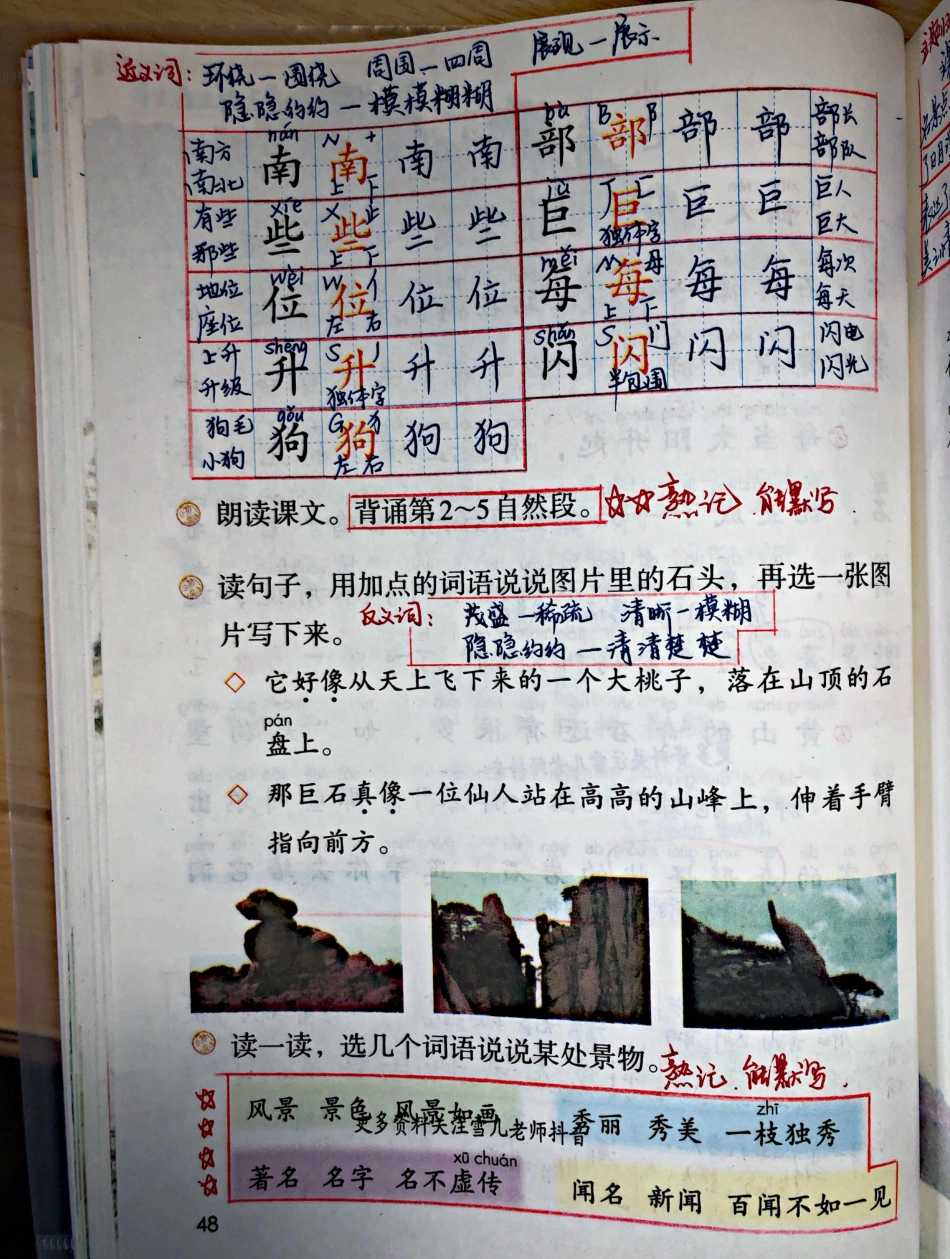 近义词：环绕—围绕 周围—四周 展现—展示
隐隐约约—模模糊糊
南方 南北 nán 南 N 十 南 上 下 南 南
有些 那些 xiē 些 X 止 些 上 下 些 些
地位 座位 wèi 位 W 亻 位 左 右 位 位
上升 升级 shēng 升 S 丿 升 独体字 升 升
狗毛 小狗 gǒu 狗 G 犭 狗 左 右 狗 狗
bù 部 B 阝 部 部 部 部长 部队
jù 巨 J 匚 巨 独体字 巨 巨 巨人 巨大
měi 每 M 母 每 上 下 每 每 每次 每天
shǎn 闪 S 门 闪 半包围 闪 闪 闪电 闪光
朗读课文。背诵第2～5自然段。☆☆熟记 能默写
读句子，用加点的词语说说图片里的石头，再选一张图
片写下来。
反义词：茂盛—稀疏 清晰—模糊
隐隐约约—清清楚楚
◇ 它好像从天上飞下来的一个大桃子，落在山顶的石
pán
盘上。
◇ 那巨石真像一位仙人站在高高的山峰上，伸着手臂
指向前方。
读一读，选几个词语说说某处景物。熟记 能默写.
风景 景色 风景如画
更多资料关注雪儿老师抖音
zhī
秀丽 秀美 一枝独秀
xū chuán
著名 名字 名不虚传
闻名 新闻 百闻不如一见
48